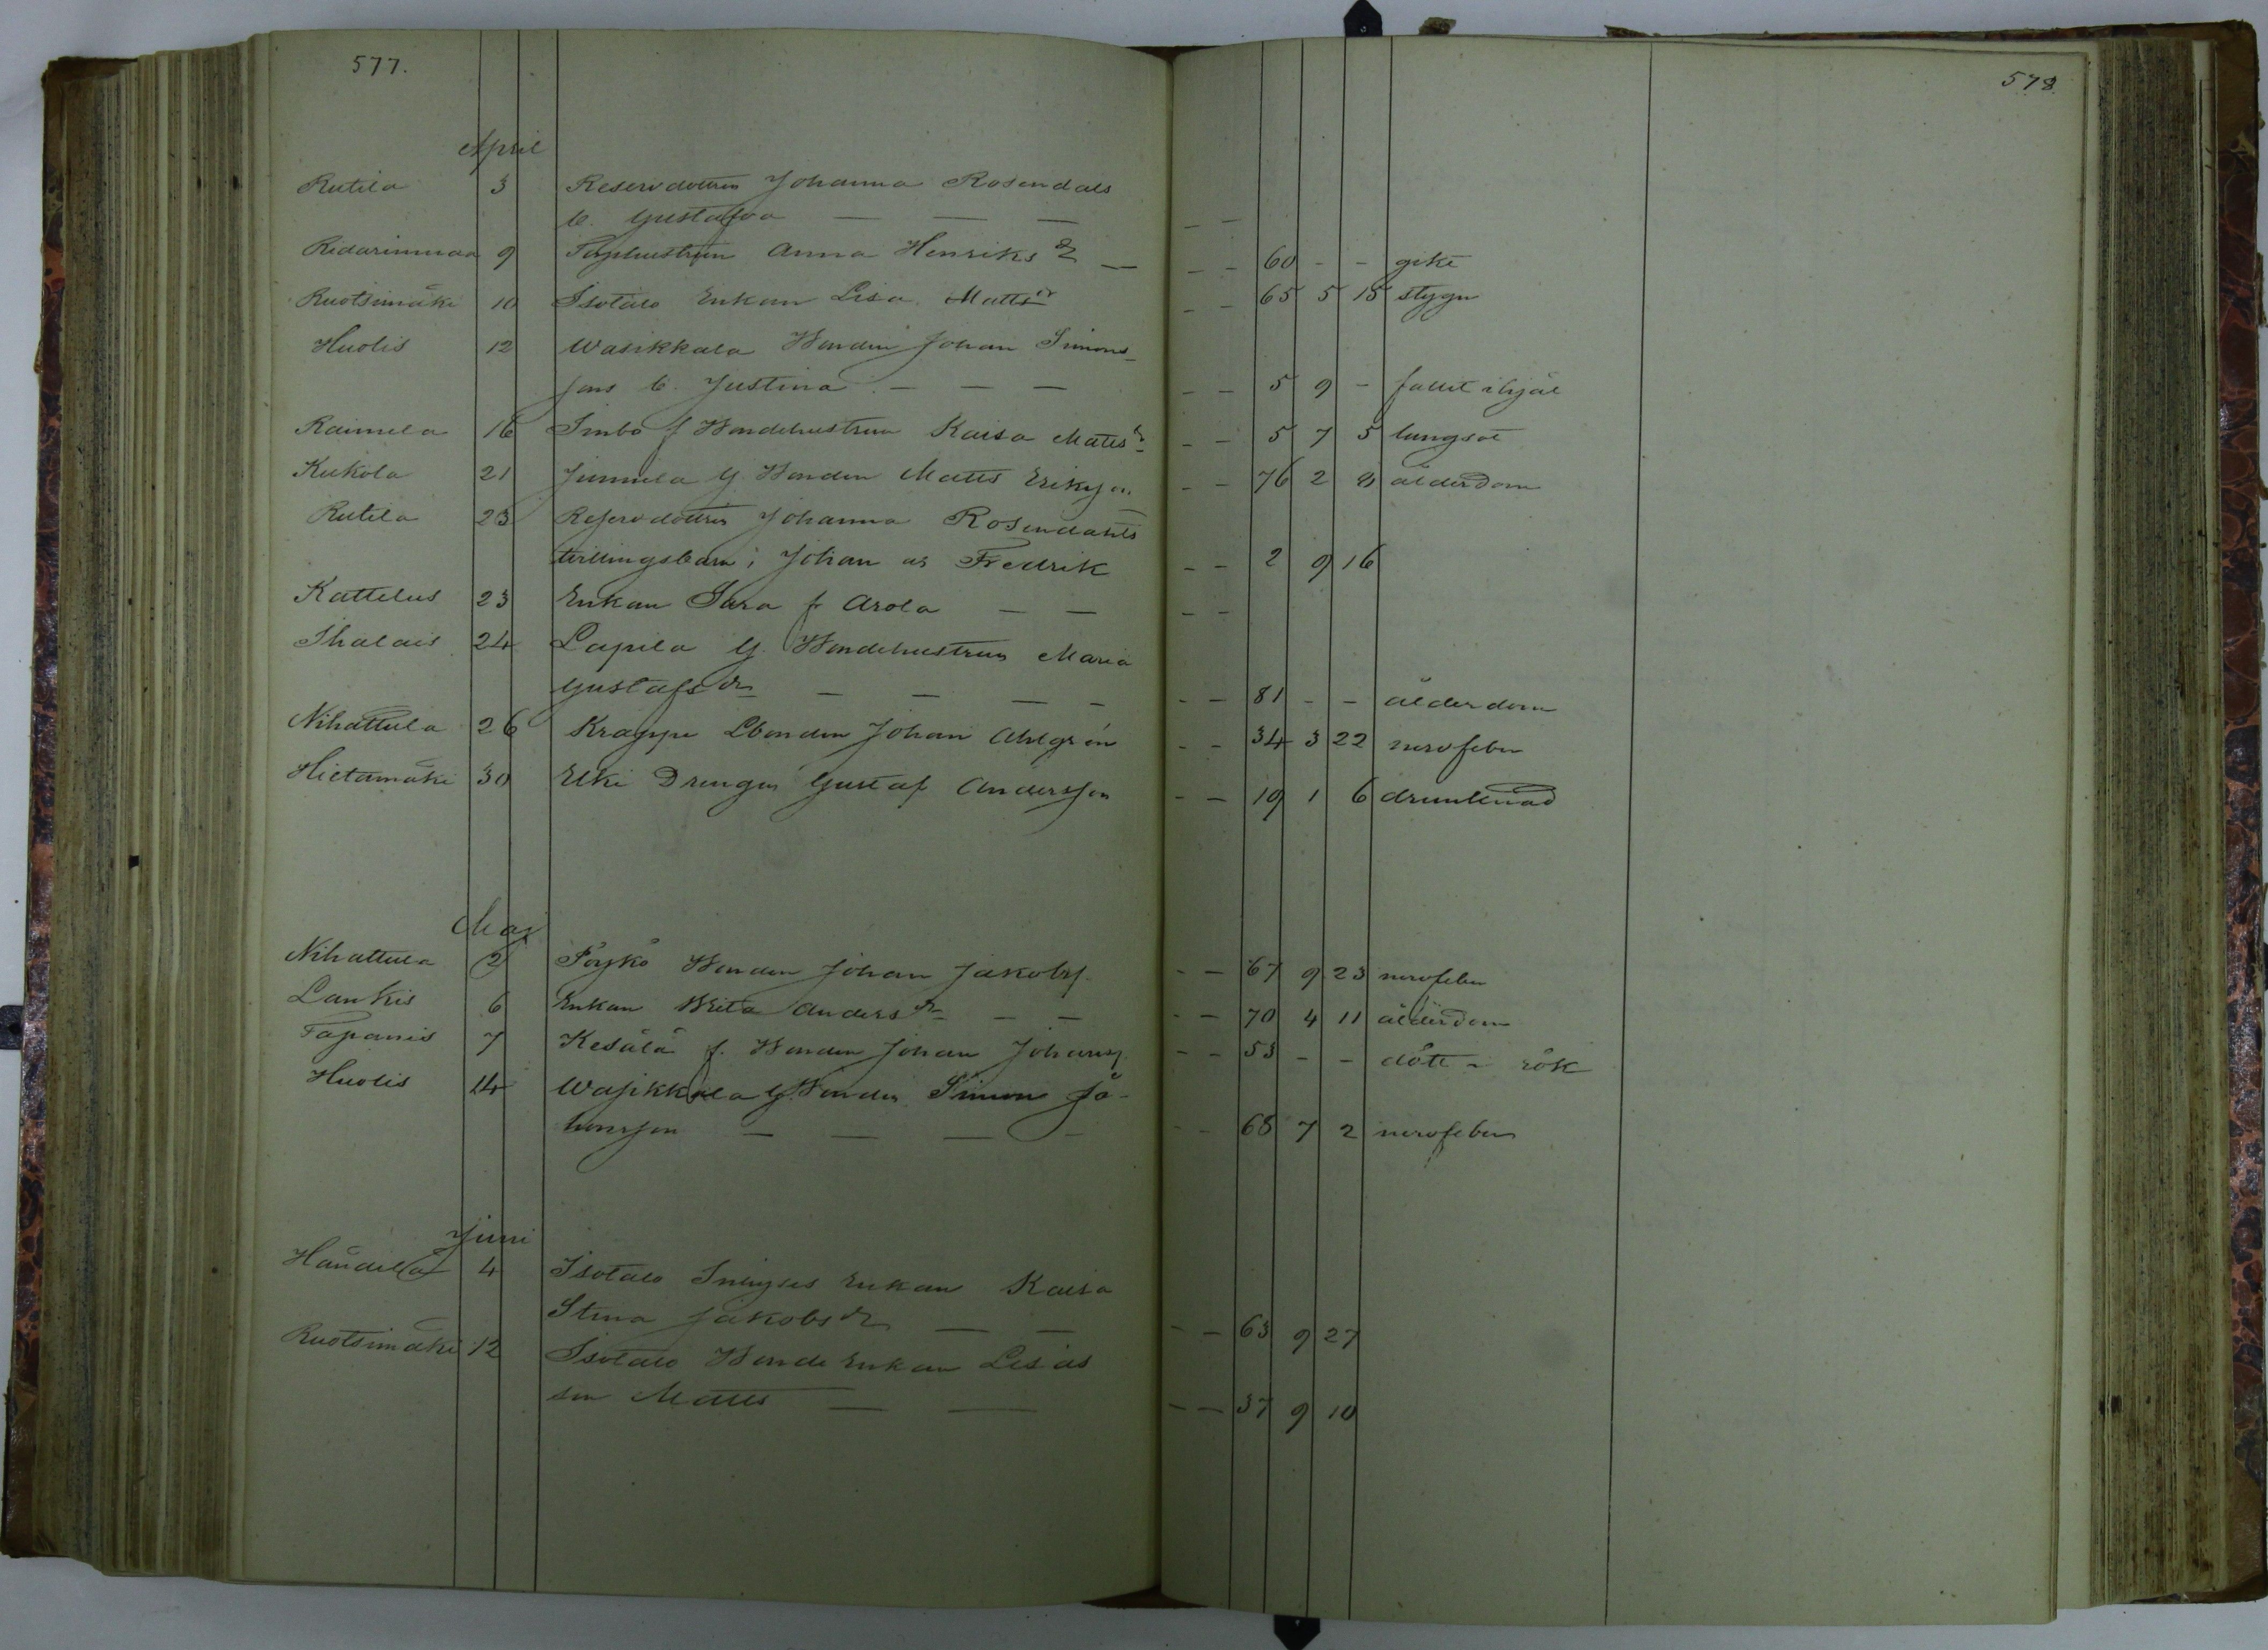 577.
578
April
Rutila 3 Reservdottren Johanna Rosendals
b. Gustafva — — — — —
Ridarinmaa 9 Torphustrun Anna Henriks dr — — — 60 - - gikt
Ruotsimäki 10 Isotalo Enkan Lisa Matts dr — — 65 5 15 stygn
Huolis 12 Wasikkala Bonden Johan Simons-
sons b. Justina — — — — — 5 9 - fallit ihjäl
Raimela 16 Simbo f Bondehustrun Kaisa Matts dr — — 5 7 5 lungsot
Kukola 21 Junnila g. Bonden Matts Eriksson — — 76 2 8 ålderdom
Rutila 23 Reservdottren Johanna Rosendahls
tvillingsbarn; Johan os Fredrik — — 2 9 16
Kattelus 23 Enkan Sara fr Arola — — — —
Ihalais 24 Lapila g. Bondehustrun Maria
Gustafs dr — — — — — — 81 - - ålderdom
Nihattula 26 Krappe Lbonden Johan Ahlgrén — — 34 3 22 nervfeber
Hietamäki 30 Elki Drengen Gustaf Andersson — — 19 1 6 drunknad
Maj
Nihattula 2 Pöykö Bonden Johan Jakobsf. — — 67 9 23 nervfeber
Laukis 6 Enkan Brita Anders dr — — — — 70 4 11 ålderdom
Tapanis 7 Kesälä f. Bonden Johan Johansf. — — 53 - - dött i rök
Huolis 14 Wasikkala g. Bonden Simon Jo-
hansson — — — — — — 68 7 2 nervfeber
Juni
4 Isotalo Inhyses Enkan Kaisa
Stina Jakobs dr — — — — 63 9 27
Ruotsimäki 12 Isotalo Bonde Enkan Lisas
son Matts — — — — 37 9 10